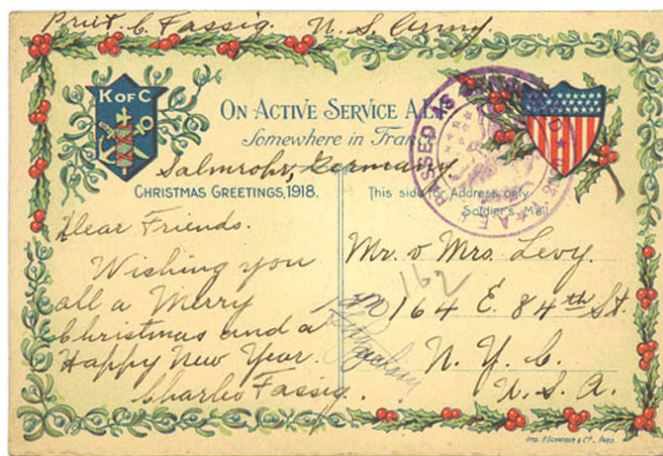 Priv. C. Fassig. U. S. Army.
K OF C
ON ACTIVE SERVICE A.E.
Somewhere in Fran
Salmrohr, Germany
CHRISTMAS GREETINGS, 1918.
This side for Address only
Soldier's Mail
PASSED AS
A.E.F.
Dear Friends.
Wishing you
all a Merry
Christmas and a
Happy New Year.
Charlie Fassig.
Mr. & Mrs. Levy.
162
164 E. 84th St.
N. Y. C.
U. S. A.